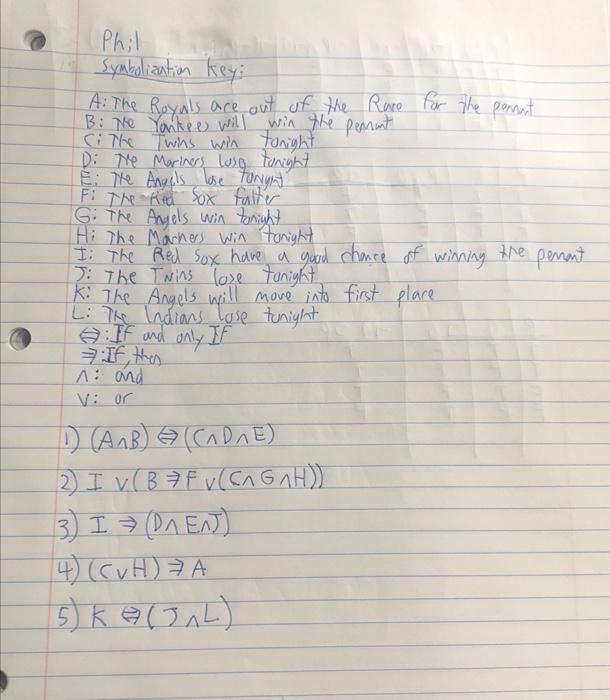 Phil
Symbolization key:
A: The Royals are out of the Race for the pennant
B: The Yankees will win the pennant
C: The Twins win tonight
D: The Mariners lose tonight
E: The Angels lose tonight
F: The Red Sox falter
G: The Angels win tonight
H: The Mariners win tonight
I: The Red Sox have a good chance of winning the pennant
J: The Twins lose tonight
K: The Angels will move into first place
L: The Indians lose tonight
⇔: If and only If
⇒: If, then
∧: and
∨: or
1) (A∧B) ⇔ (C∧D∧E)
2) I ∨ (B ⇒ F ∨ (C∧G∧H))
3) I ⇒ (D∧E∧J)
4) (C∨H) ⇒ A
5) K ⇔ (J∧L)